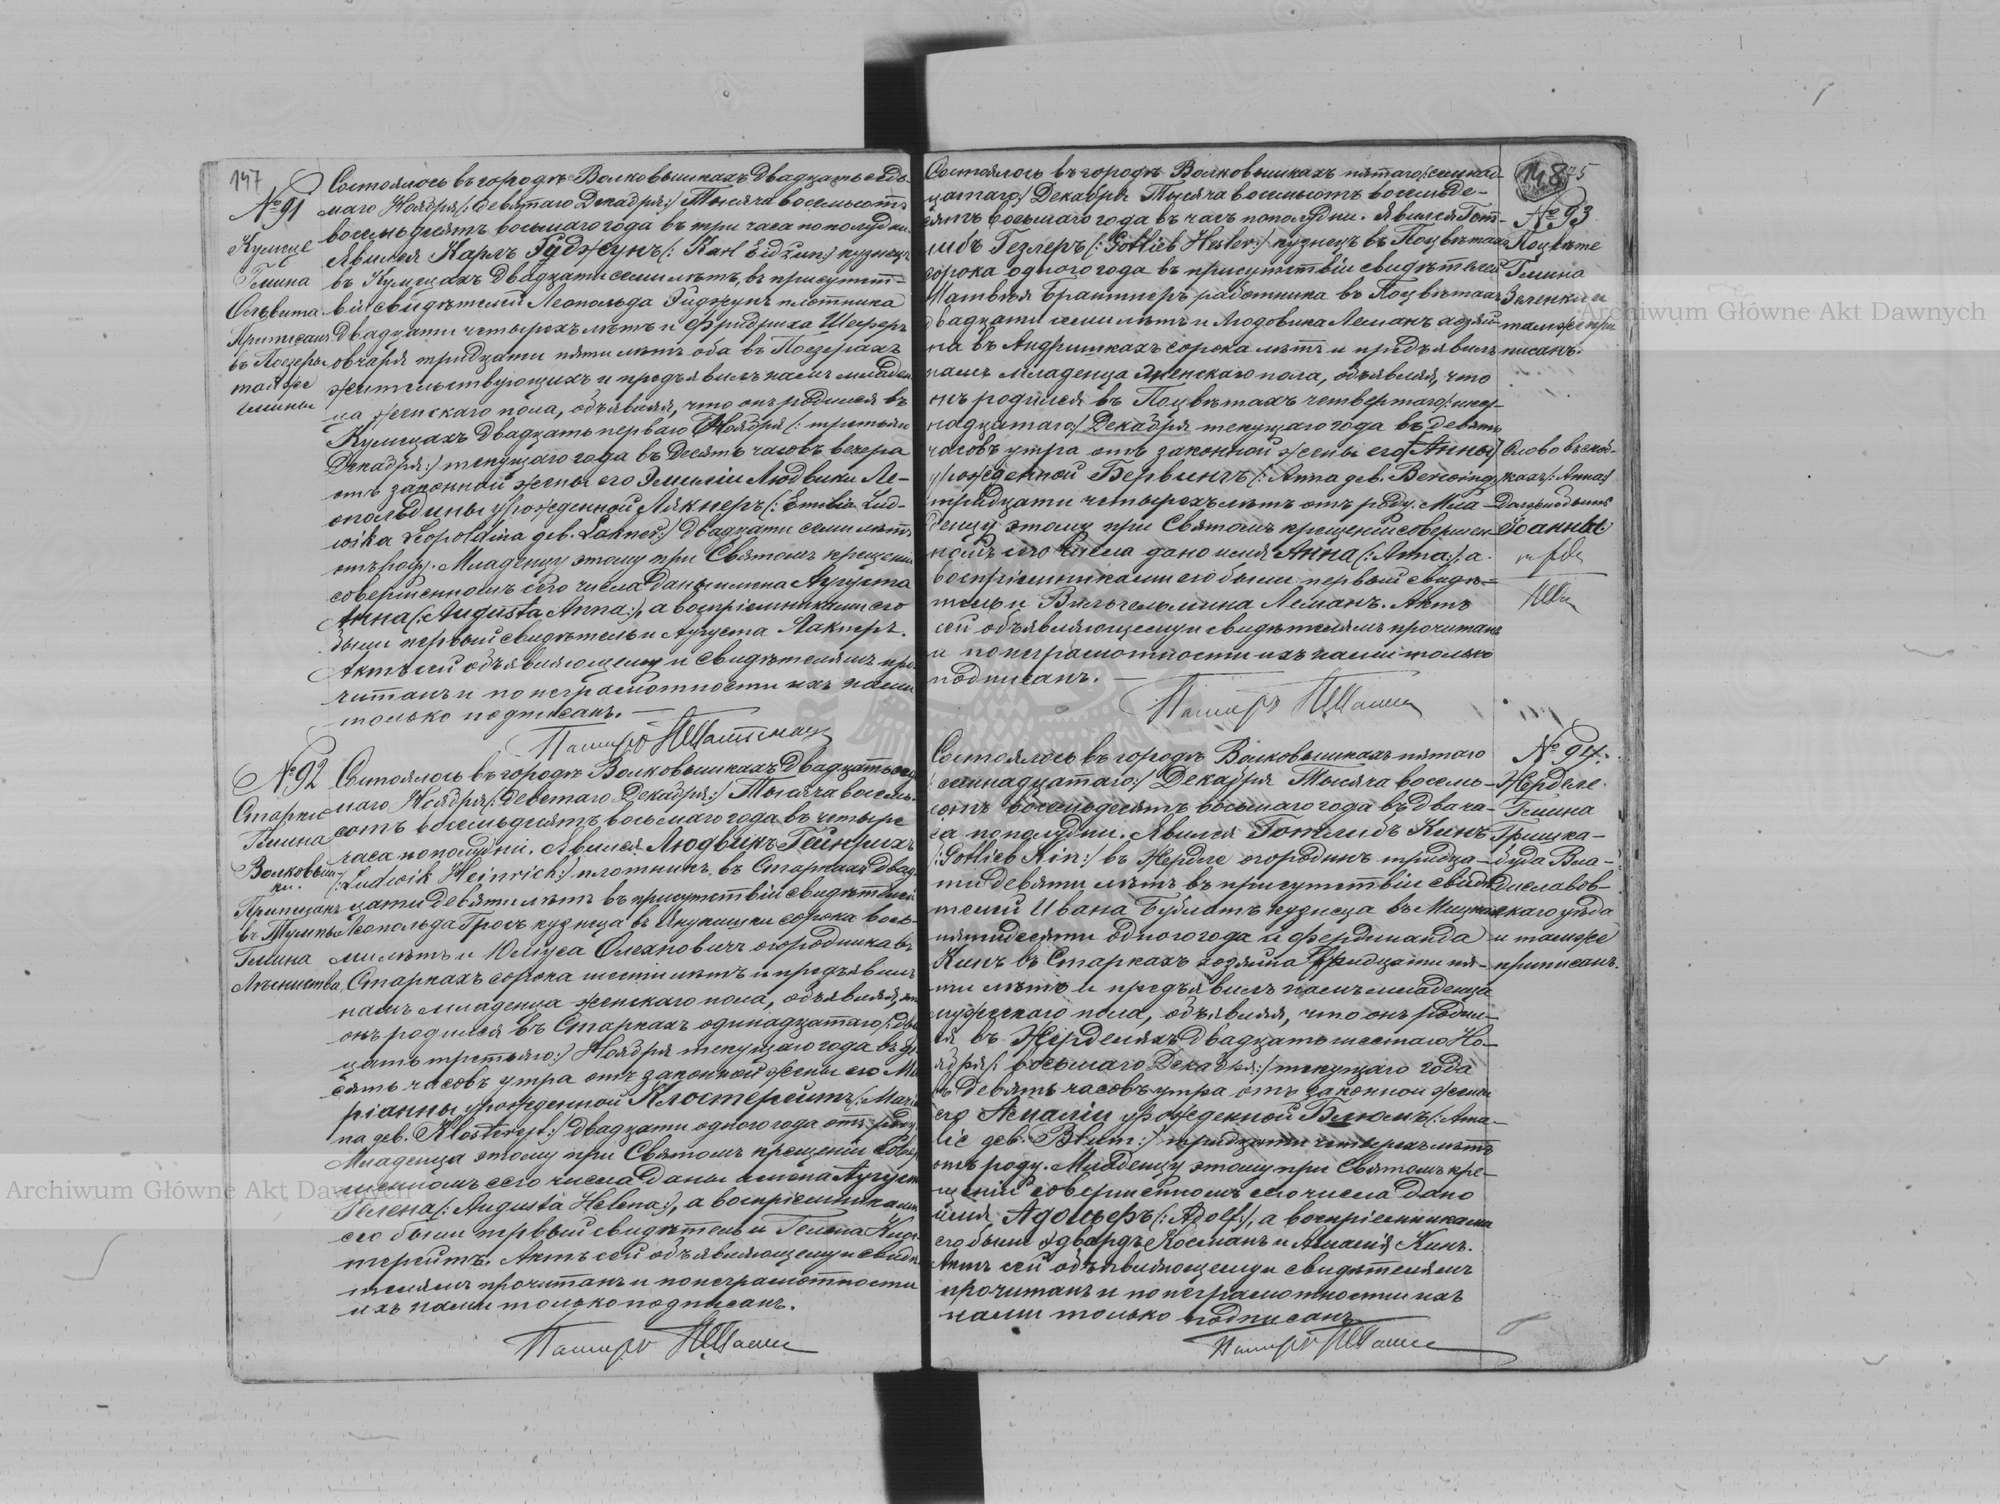 147
№ 91
Кумеце
Гмина
Ольвита
Приписанъ
въ Поезеры
той же
гмины
Состоялось въ городѣ Волковышкахъ двадцать седь-
маго Ноября /: девятаго Декабря :/ Тысяча восемьсотъ
восемьдесятъ восьмаго года въ три часа пополудни.
Явился Карлъ Эйджунъ /: Karl Eidżun :/ кузнецъ
въ Кумецахъ двадцати семи лѣтъ, въ присутст-
віи свидѣтелей Леопольда Эйджунъ плотника
двадцати четырехъ лѣтъ и Фридриха Шеферъ
овчаря тридцати пяти лѣтъ оба въ Поезерахъ
жительствующихъ и предъявилъ намъ младен-
ца женскаго пола, объявляя, что онъ родился въ
Кумецахъ двадцать перваго Ноября /: третьяго
Декабря :/ текущаго года въ десять часовъ вечера
отъ законной жены его Эмиліи Людвики Ле-
опольдины урожденной Лакнеръ /: Emilia Lud-
wika Leopoldina geb. Lakner :/ двадцати семи лѣтъ
отъ роду. Младенцу этому при Святомъ крещеніи
совершенномъ сего числа даны имена Августа
Анна /: Augusta Anna :/, а воспріемниками его
были первый свидѣтель и Августа Лакнеръ.
Актъ сей объявляющему и свидѣтелямъ про-
читанъ и по неграмотности ихъ нами
только подписанъ. —
Пасторъ
№ 92
Старке
Гмина
Волковыш-
ки.
Приписанъ
въ
Гмина
Состоялось въ городѣ Волковышкахъ двадцать седь-
маго Ноября /: девятаго Декабря :/ Тысяча восемь-
сотъ восемьдесятъ восьмаго года въ четыре
часа пополудни. Явился Людвикъ Гейнрихъ
/: Ludwik Heinrich :/ плотникъ, въ Старкахъ двад-
цати девяти лѣтъ въ присутствіи свидѣтелей
Леопольда Гросъ кузнеца въ сорока вось-
ми лѣтъ и Юліуса Олехновичъ огородника въ
Старкахъ сорока шести лѣтъ и предъявилъ
намъ младенца женскаго пола, объявляя, что
онъ родился въ Старкахъ одинадцатаго /: двад-
цать третьяго :/ Ноября текущаго года въ де-
сять часовъ утра отъ законной жены его Ма-
ріанны урожденной Клостерейтъ /: Marian-
na geb. :/ двадцати одного года отъ роду.
Младенцу этому при Святомъ крещеніи совер-
шенномъ сего числа даны имена Августа
Гелена /: Augusta Helena :/, а воспріемниками
его были первый свидѣтель и Гелена Клос-
терейтъ. Актъ сей объявляющему и свидѣ-
телямъ прочитанъ и по неграмотности
ихъ нами только подписанъ.
Пасторъ
148
75
Состоялось въ городѣ Волковышкахъ пятаго /: семнад-
цатаго :/ Декабря Тысяча восемьсотъ восемьде-
сятъ восьмаго года въ часъ пополудни. Явился Гот-
либъ Гезлеръ /: Gotlieb Hesler :/ кузнецъ въ Поцвѣтахъ
сорока одного года въ присутствіи свидѣтелей
Матвѣя работника въ Поцвѣтахъ
двадцати семи лѣтъ и Людовика Леманъ хозяи-
на въ Андришкахъ сорока лѣтъ и предъявилъ
намъ младенца женскаго пола, объявляя, что
онъ родился въ Поцвѣтахъ четвертаго /: шест-
надцатаго :/ Декабря текущаго года въ девять
часовъ утра отъ законной жены его Анны
урожденной /: Anna geb. :/
тридцати четырехъ лѣтъ отъ роду. Мла-
денцу этому при Святомъ крещеніи совершен-
номъ сего числа дано имя Анна /: Anna :/, а
воспріемниками его были первый свидѣ-
тель и Вильгельмина Леманъ. Актъ
сей объявляющему и свидѣтелямъ прочитанъ
и по неграмотности ихъ нами только
подписанъ. —
Пасторъ
№ 93
Поцвѣте
Гмина
Зеленки и
тамъ же при-
писанъ.
Слово въ скоб-
кахъ /: Анна :/
Іоанны
Состоялось въ городѣ Волковышкахъ пятаго
/: семнадцатаго :/ Декабря Тысяча восемь-
сотъ восемьдесятъ восьмаго года въ два ча-
са пополудни. Явился Готлибъ Кинъ
/: Gotlieb Kin :/ въ Жерделе огородникъ тридца-
ти девяти лѣтъ въ присутствіи свидѣ-
телей Ивана кузнеца въ
пятидесяти одного года и Фердинанда
Кинъ въ Старкахъ хозяина тридцати пя-
ти лѣтъ и предъявилъ намъ младенца
мужескаго пола, объявляя, что онъ родил-
ся въ Жерделяхъ двадцать шестаго Но-
ября /: восьмаго Декабря :/ текущаго года
въ девять часовъ утра отъ законной жены
его Амаліи урожденной Блюмъ /: Ama-
lie geb. Blum :/ тридцати четырехъ лѣтъ
отъ роду. Младенцу этому при Святомъ кре-
щеніи совершенномъ сего числа дано
имя Адольфъ /: Adolf :/, а воспріемниками
его были Эдвардъ Косманъ и Амалія Кинъ.
Актъ сей объявляющему и свидѣтелямъ
прочитанъ и по неграмотности ихъ
нами только подписанъ.
Пасторъ
№ 94.
Жерделе.
Гмина
Гришка-
буда Вла-
диславов-
скаго уѣзда
и тамъ же
приписанъ.
Archiwum Główne Akt Dawnych
Archiwum Główne Akt Dawnych